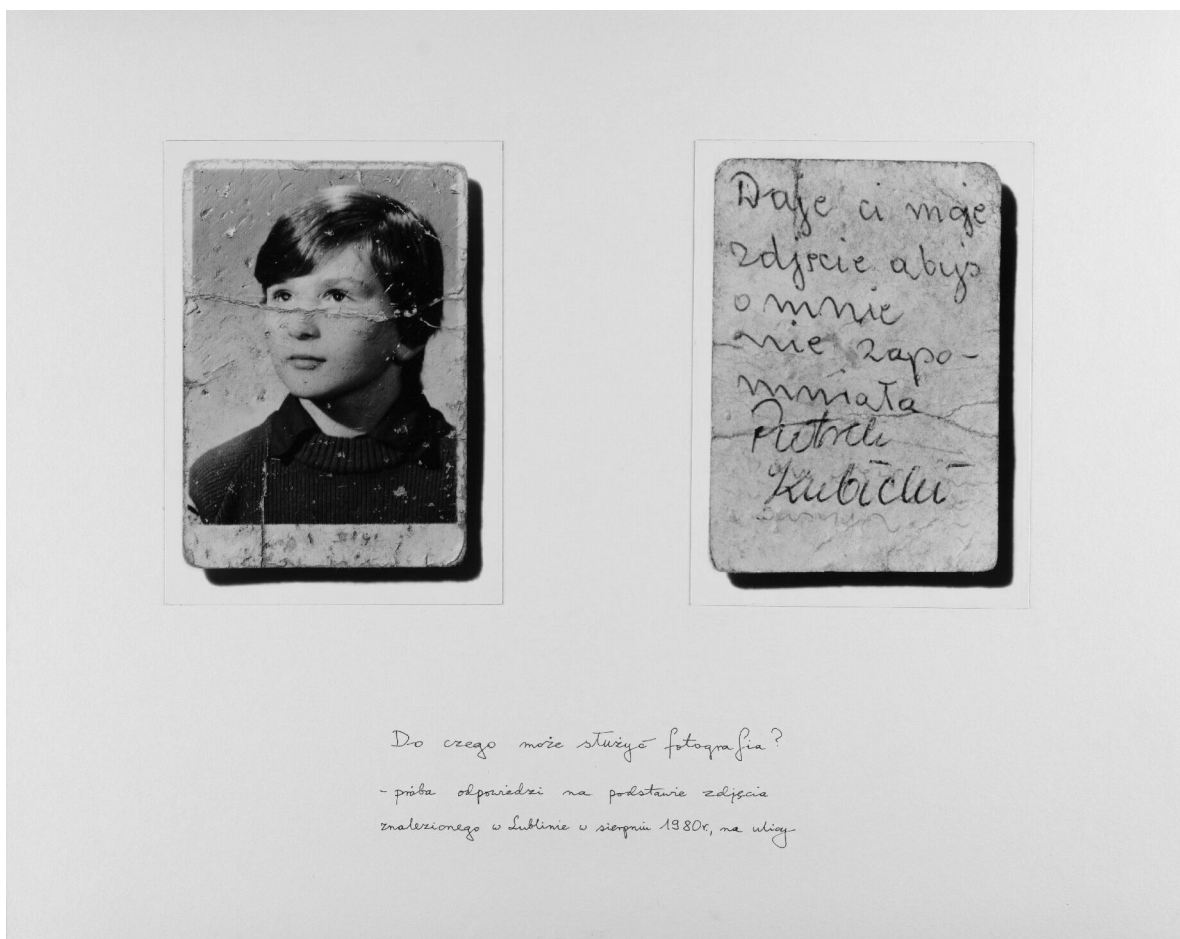 Daje ci moje
zdjęcie abyś
o mnie
nie zapo-
mniała
Piotrek
Kubicki
Do czego może służyć fotografia?
- próba odpowiedzi na podstawie zdjęcia
znalezionego w Lublinie w sierpniu 1980r., na ulicy